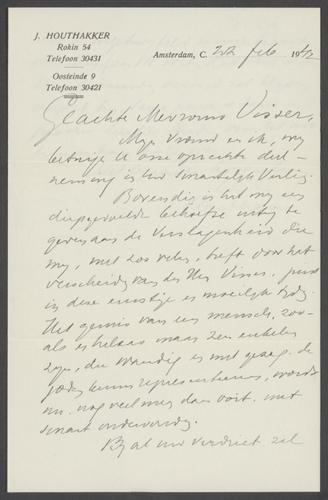 J. HOUTHAKKER
Rokin 54
Telefoon 30431
Oosteinde 9
Telefoon 30421
Amsterdam, C. 22 feb 1942
Geachte Mevrouw Visser,
Mijn vrouw en ik, wij
betuigen U onze oprechte deel-
neming in Uw smartelijk verlies.
Bovendien is het mij een
diepgevoelde behoefte uiting te
geven aan de verslagenheid die
mij, met zoo velen, treft door het
verscheiden van den Heer Visser, juist
in deze ernstige en moeilijke tijd.
Het gemis van een mensch, zoo-
als er helaas maar zeer enkelen
zijn, die waardig en met gezag de
joden kunnen representeeren, wordt
nu nog veel meer dan ooit met
smart ondervonden.
Bij al uw verdriet zal